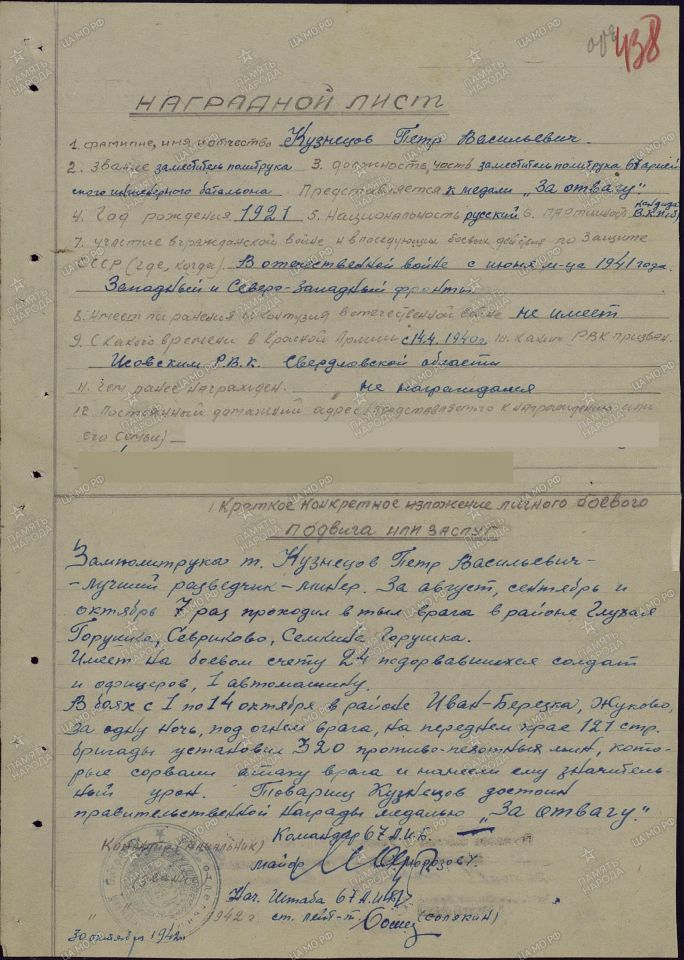 438
НАГРАДНОЙ ЛИСТ
1. фамилие, имя и отчество Кузнецов Петр Васильевич.
2. Звание заместитель политрука 3. должность, часть заместитель политрука 67 армей
ского инженерного батальона Представляется к медали „За отвагу"
4. Год рождения 1921 5. Национальность русский 6. партийной кандидат В.К.П(б)
7. участие в гражданской войне и в последующих боевых действиях по защите
СССР (где, когда). В отечественной войне с июня м-ца 1941 года.
Западный и Северо-Западный фронты
8. Имеет ли ранения и контузия в отечественной войне не имеет
9. С какого времени в Красной Армии с 14.4.1940г. 10. каким РВК призван.
Исовским Р.В.К. Свердловской области
11. Чем ранее награжден. не награждался
12. Постоянный домашний адрес (представляемого к награждению или
его семьи)
Краткое конкретное изложение личного боевого
подвига или заслуг
Замполитрука т. Кузнецов Петр Васильевич-
-лучший разведчик-минер. За август, сентябрь и
октябрь 7 раз проходил в тыл врага в районе Глухая
Горушка, Севриково, Семкина Горушка.
Имеет на боевом счету 24 подорвавшихся солдат
и офицеров, 1 автомашину.
В боях с 1 по 14 октября в районе Иван-Березка, Жуково,
за одну ночь, под огнем врага, на переднем крае 121 стр.
бригады установил 320 противо-пехотных мин, кото-
рые сорвали атаку врага и нанесли ему значитель-
ный урон. Товарищ Кузнецов достоин
правительственной награды медалью „За отвагу".
Командир 67 А.И.Б.
Командир (начальник)
майор
Нач. Штаба 67 А.И.Б.
1942 г ст. лейт-т. (Солякин)
30 октября 1942г
ПАМЯТЬ НАРОДА
ЦАМО.РФ